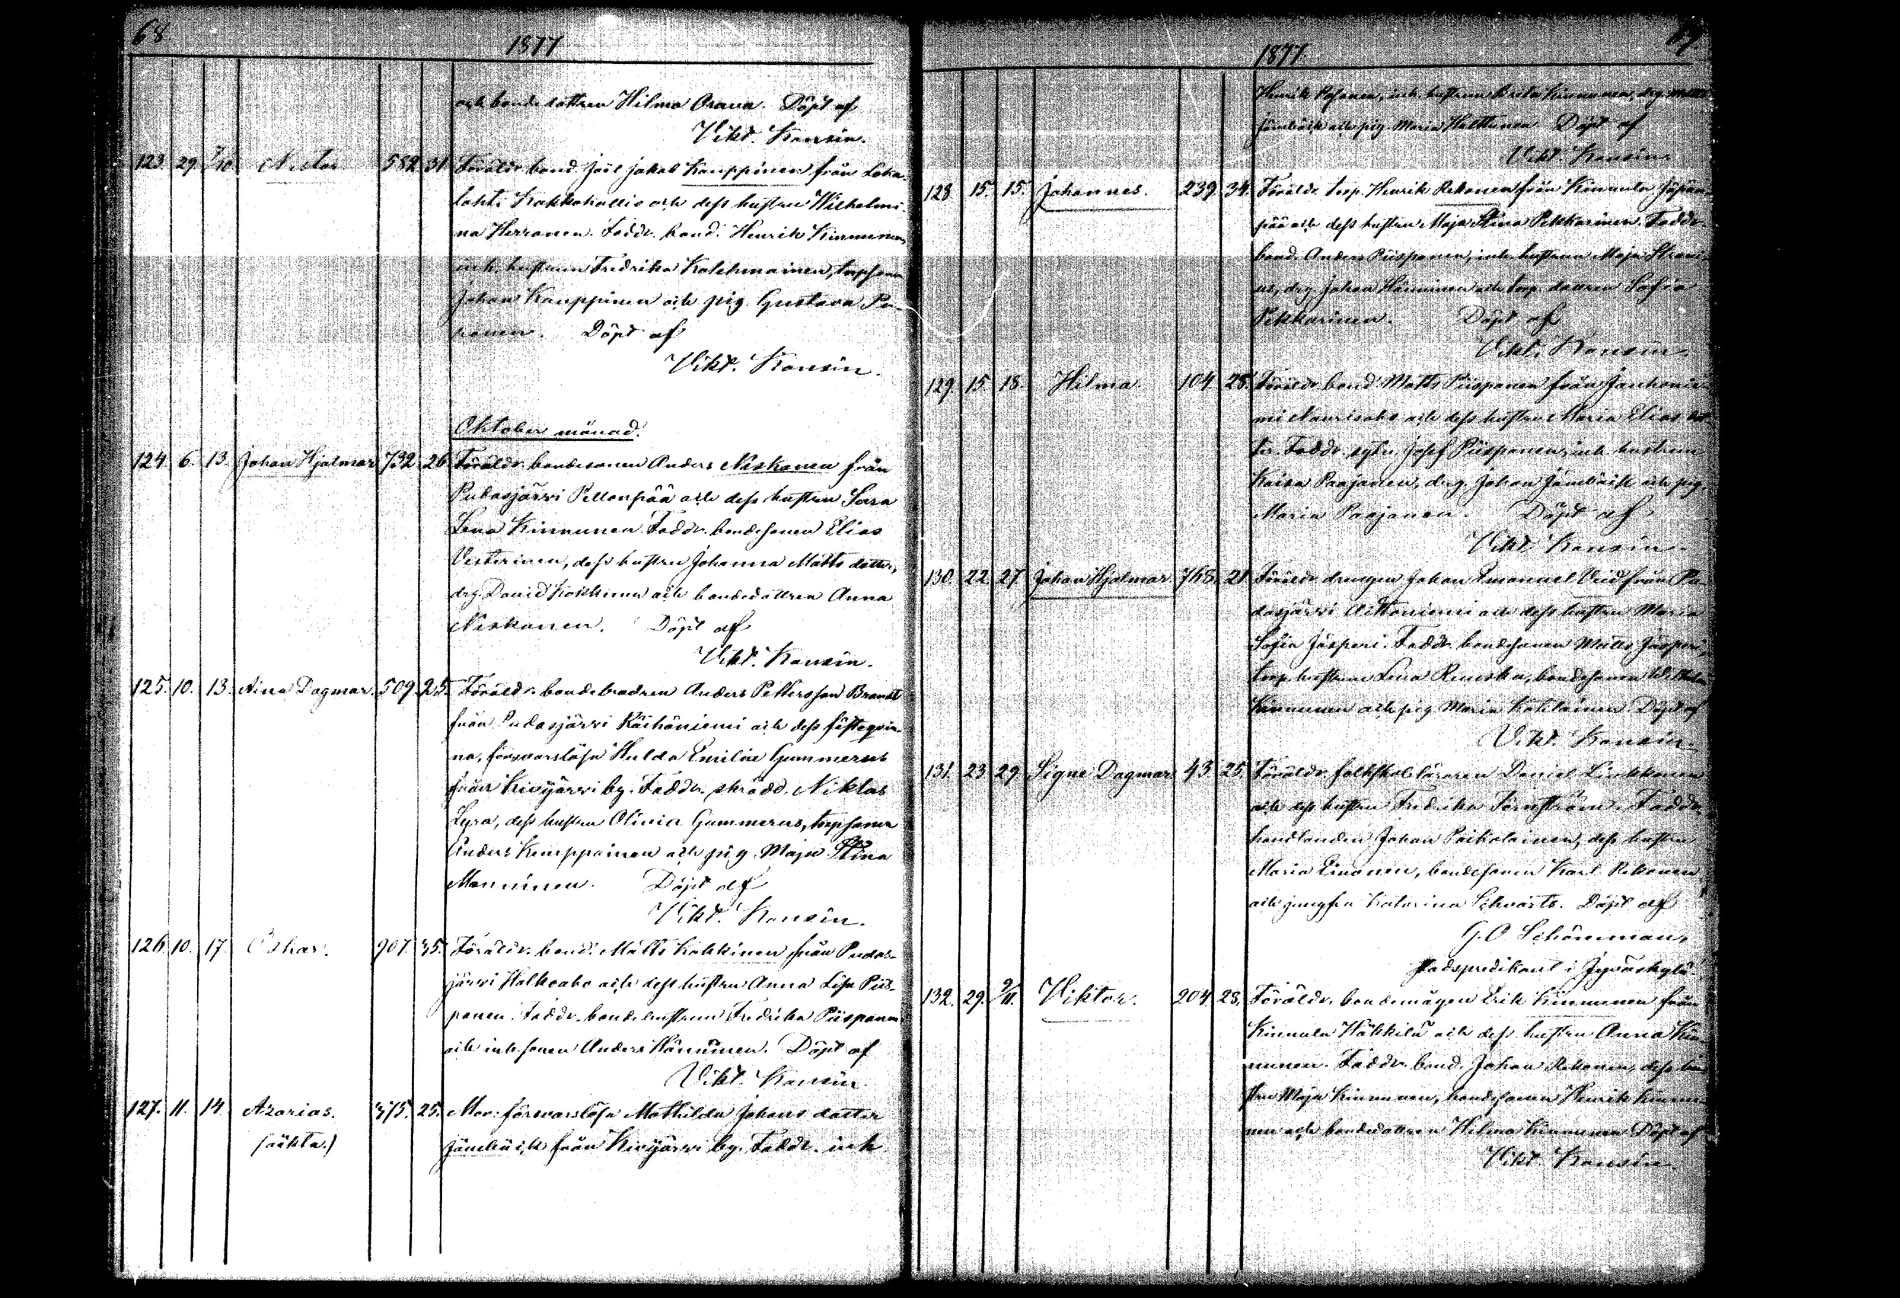 68
1877
och bonde dottren Hilma Orava. Döpt af
Vikt. Konsin.
123. 29. 7/10 Nestor 582. 31. Föräldr. bond. Joel Jakob Kauppinen från Loka-
lahti Kokkokallio och dess hustru Wilhelmi-
na Herranen. Faddr. bond. Henrik Kinnunen,
inh. hustrun Fredrika Kolehmainen, torpsonen
Johan Kauppinen och pig. Gustava Po-
ronen. Döpt af
Vikt. Konsin.
Oktober månad.
124. 6. 13. Johan Hjalmar 732. 26. Föräldr. bondesonen Anders Niskanen från
Pudasjärvi Pellonpää och dess hustru Sara
Lena Kinnunen. Faddr. bondesonen Elias
Vesterinen, dess hustru Johanna Matts dotter,
drg. David Koskinen och bondedottren Anna
Niskanen. Döpt af
Vikt. Konsin.
125. 10. 13. Aina Dagmar. 509. 25. Föräldr. bondebrodren Anders Pettersson Brandt
från Pudasjärvi Räihäniemi och dess fästeqvin-
na, försvarslösa Hulda Emilia Gummerus
från Kivijärvi by. Faddr. skrädd. Niklas
Lyra, dess hustru Olivia Gummerus, torpsonen
Anders Kemppainen och pig. Maja Stina
Manninen. Döpt af
Vikt. Konsin.
126. 10. 17. Oskar. 907. 35. Föräldr. bond. Matts Kokkinen från Pudas-
järvi Halkoaho och dess hustru Anna Lisa Piis-
panen. Faddr. bondehustrun Fredrika Piispanen
och inh. sonen Anders Hänninen. Döpt af
Vikt. Konsin
127. 11. 14. Azarias. 375. 25. Mor: försvarslösa Mathilda Johans dotter
(oäkta.) Jämbäck från Kivijärvi by. Faddr. inh.
69.
1877.
Henrik hustrun Kinnunen, drg. Matts
Jämbäck och pig. Maria Halttunen. Döpt af
Vikt. Konsin.
128. 15. 15. Johannes. 239. 34. Föräldr. torp. Henrik Rekonen från Kinnula
pää och dess hustru Maja Stina Pekkarinen. Faddr.
bond. Anders Piispanen, inh. hustrun Maja
drg. Johan Hänninen och torp. dottren Sofia
Pekkarinen. Döpt af
Vikt. Konsin.
129. 15. 18. Hilma. 104. 28. Föräldr. bond. Matts Piispanen från
mi Naurisaho och dess hustru Maria Elias dot-
ter. Faddr. Josef Piispanen, inh. hustrun
Kaisa Paajanen, drg. Johan Jämbäck och pig.
Maria Paajanen. Döpt af
Vikt. Konsin.
130. 22. 27. Johan Hjalmar. 768. 21. Föräldr. drängen Johan Emanuel från Pu-
dasjärvi Aittoniemi och dess hustru Maria
Sofia Jäsperi. Faddr. bondesonen Matts Jäsperi,
torp. hustrun Lena bondesonen
Kinnunen och pig. Maria Döpt af
Vikt. Konsin.
131. 23. 29. Signe Dagmar 43. 25. Föräldr. folkskolläraren Daniel Liukkonen
och dess hustru Fredrika Törnström. Faddr.
handlanden Johan Poikolainen, dess hustru
Maria bondesonen Karl Rekonen
och jungfru Katarina Schvarts. Döpt af
G. O. Schöneman,
stadspredikant i Jyväskylä.
132. 29. 9/11. Viktor. 204. 28. Föräldr. bondemågen Erik Kinnunen från
Kinnula Häkkilä och dess hustru Anna Kin-
nunen. Faddr. bond. Johan Rekonen, dess hu-
stru Maja Kinnunen, bondesonen Henrik Kinnu-
nen och bondedottren Hilma Kinnunen. Döpt af
Vikt. Konsin.